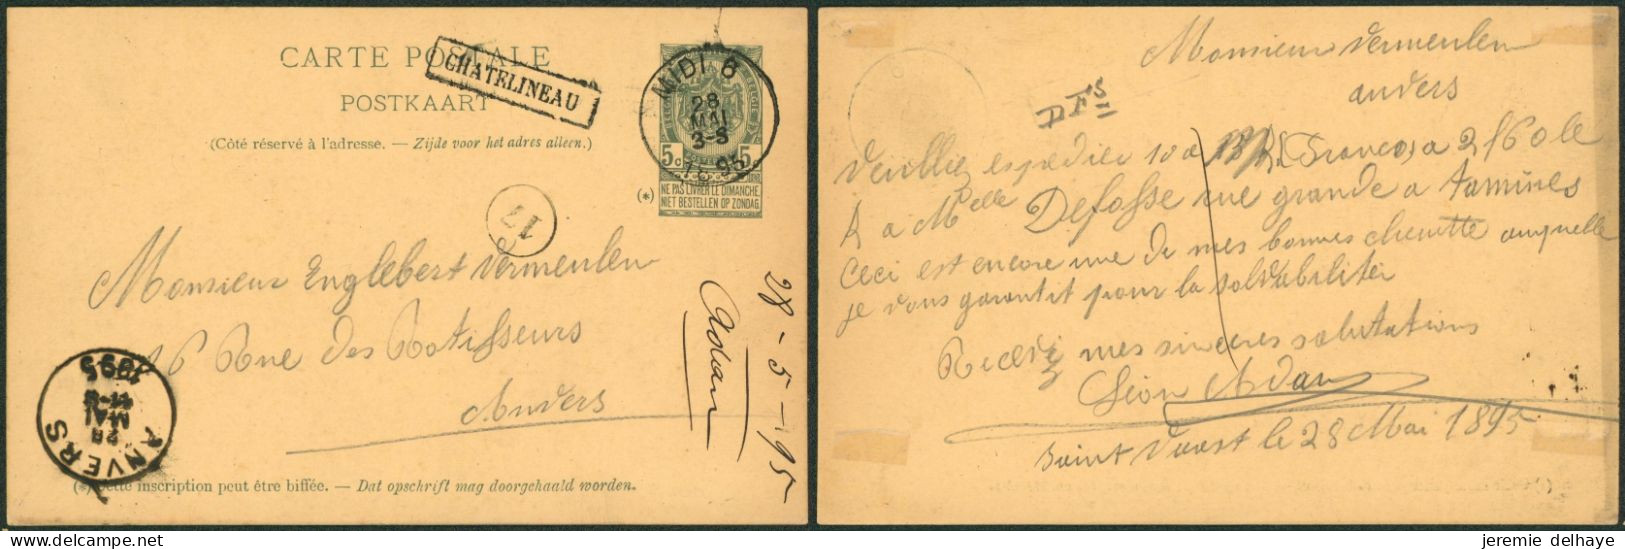 CARTE POSTALE
POSTKAART
CHATELINEAU
(Côté réservé à l'adresse. — Zijde voor het adres alleen.)
MIDI 6
28
MAI
3-S
1895
5c 5c
NE PAS LIVRER LE DIMANCHE
NIET BESTELLEN OP ZONDAG
(*)
17
Monsieur Englebert Vermeulen
16 Rue des Rotisseurs
Anvers
28 - 5 - 95
Adan
ANVERS
28
MAI
1895
(*) Cette inscription peut être biffée. — Dat opschrift mag doorgehaald worden.
Monsieur Vermeulen
anvers
Veuillez expedier 10 a Francos a 2f60 le
K a Melle Defosse rue grande a tamines
Ceci est encore une de mes bonnes auquelle
je vous garantit pour la solvabiliter
Recevez mes sinceres salutations
Léon Adan
Saint Vaast le 28 Mai 1895
jeremie delhaye